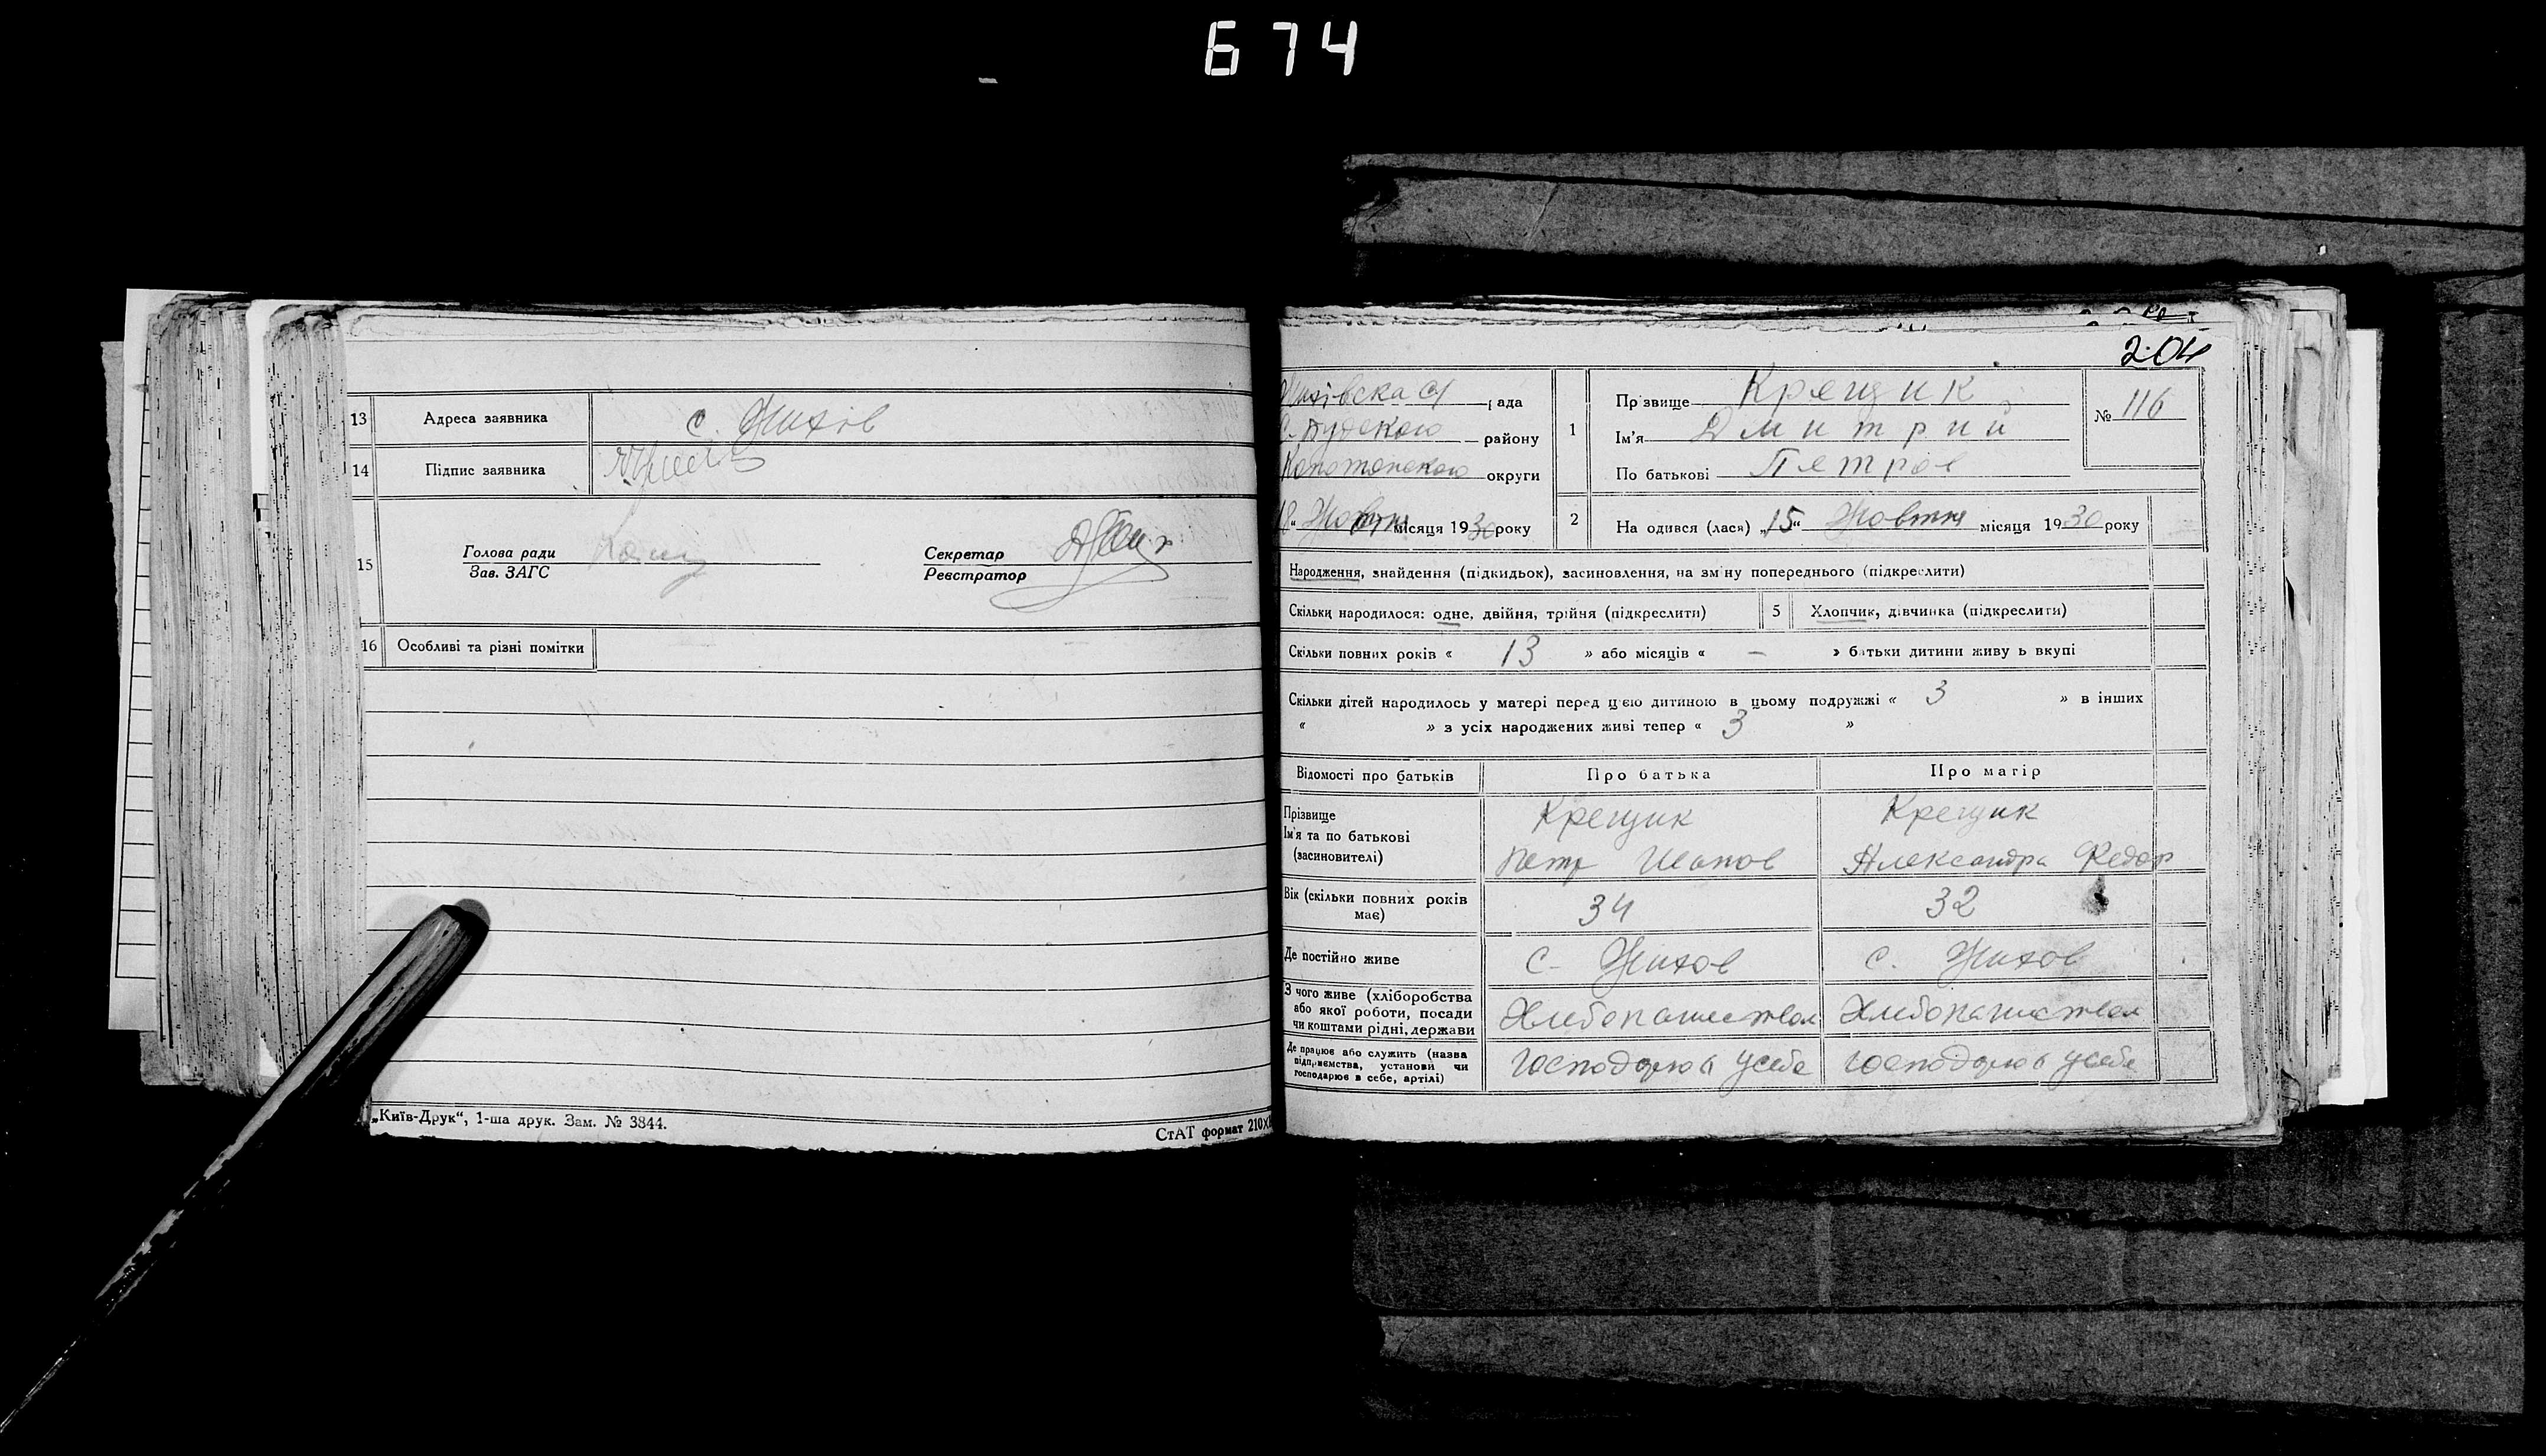 674
13 Адреса заявника с. Жихов
14 Підпис заявника
15 Голова ради
Зав. ЗАГС
Секретар
Реєстратор
16 Особливі та різні помітки
„Київ-Друк“, 1-ша друк. Зам. № 3844.
СтАТ формат 210х
204
Жихівська с/ рада
С. Будского району
Конотопского округи
18 “ Жовтня місяця 1930 року
1 Прізвище Крещик
Ім'я Дмитрий
По батькові Петров
№ 116
2 На одився (лася) „15“ Жовтня місяця 1930 року
Народження, знайдення (підкидьок), засиновлення, на зміну попереднього (підкреслити)
Скільки народилося: одне, двійня, трійня (підкреслити) 5 Хлопчик, дівчинка (підкреслити)
Скільки повних років « 13 » або місяців « – » батьки дитини живу ь вкупі
Скільки дітей народилось у матері перед цією дитиною в цьому подружжі « 3 » в інших
« » з усіх народжених живі тепер « 3 »
Відомості про батьків Про батька Про матір
Прізвище
Ім'я та по батькові
(засиновителі)
Крещик
Петр
Крещик
Александра Федор
Вік (скільки повних років
має)
34 32
Де постійно живе с. Жихов с. Жихов
З чого живе (хліборобства
або якої роботи, посади
чи коштами рідні, держави
Хлебопашеством Хлебопашеством
Де працює або служить (назва
підприємства, установи чи
господарює в себе, артілі)
господарюв усебе господарюв усебе